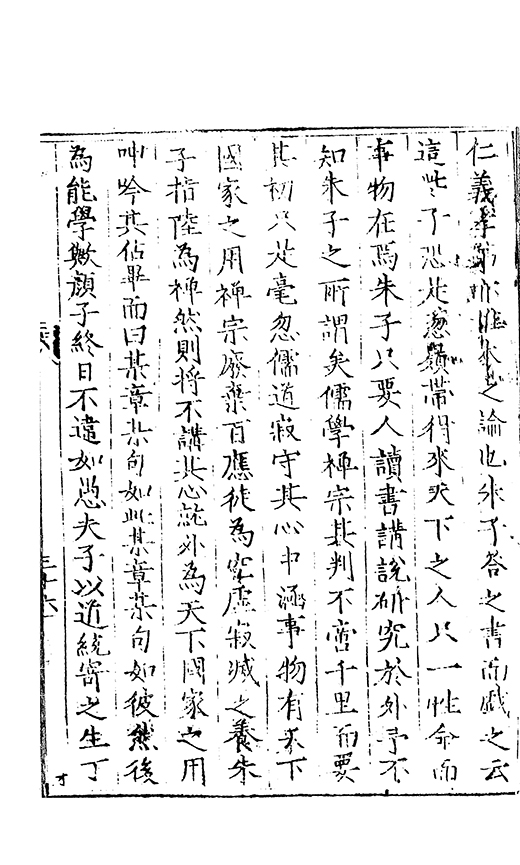 仁義學第亦惟求之論也朱子答之書而戲之云
這些子恐是蔥嶺帶得來天下之人只一性命而
事物在焉朱子只要人讀書講說研究於外予不
知朱子之所謂矣儒學禪宗其判不啻千里而要
其初只是毫忽儒道寂守其心中涵事物有天下
國家之用禪宗廢棄百應徒為空虛寂滅之養朱
子指陸為禪然則將不講其心就外為天下國家之用
呻吟其佔畢而曰某章某句如此某章某句如彼然後
為能學歟顏子終日不違如愚夫子以道統寄之生丁
三十六